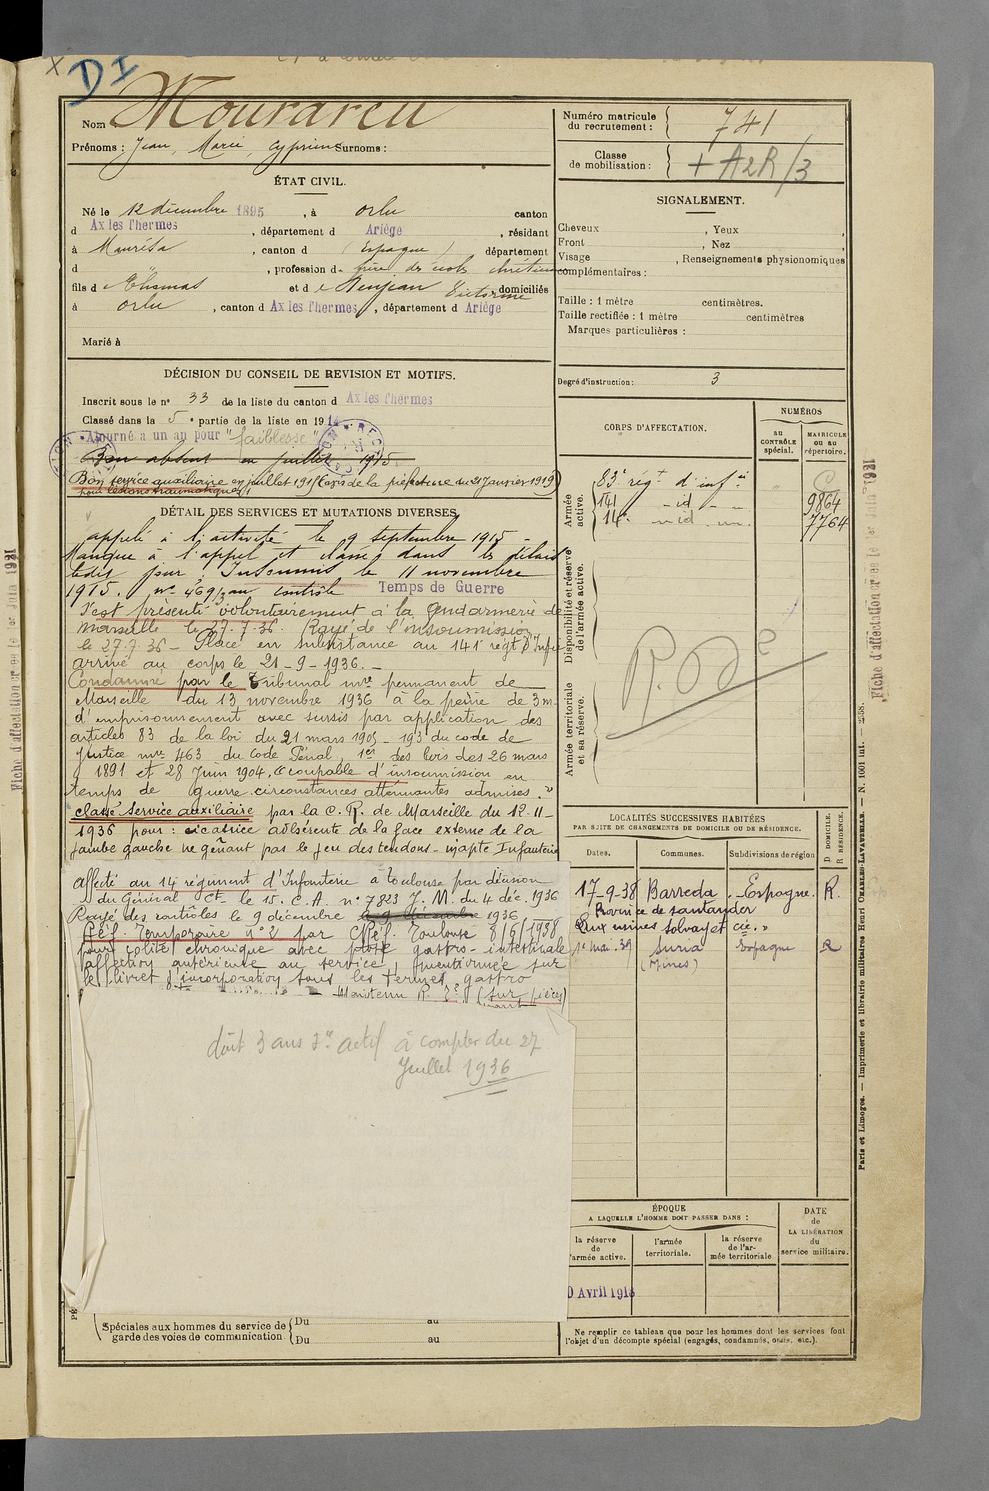 DI
Nom Mourareu
Prénoms : Jean, Marie, Cyprien Surnoms :
Numéro matricule du recrutement : 741
Classe de mobilisation : + A2R/3
ÉTAT CIVIL.
Né le 12 décembre 1895, à Orlu canton
d Ax les Thermes, département d Ariège, résidant
à Manrésa, canton d (Espagne) département
d , profession d frère des écoles chrétiennes
fils d Thomas et d domiciliés
à Orlu, canton d Ax les Thermes, département d Ariège
Marié à
SIGNALEMENT.
Cheveux , Yeux ,
Front , Nez ,
Visage , Renseignements physionomiques
complémentaires :
Taille : 1 mètre centimètres.
Taille rectifiée : 1 mètre centimètres
Marques particulières :
Degré d'instruction : 3
DÉCISION DU CONSEIL DE REVISION ET MOTIFS.
Inscrit sous le n° 33 de la liste du canton d Ax les Thermes
Classé dans la 5e partie de la liste en 191
Ajourné a un an pour "faiblesse"
Bon absent en juillet 1915
Bon service auxiliaire en juillet 1915 (avis de la préfecture du 21 Janvier 1919)
pour lésions traumatiques
DÉTAIL DES SERVICES ET MUTATIONS DIVERSES.
appelé à l'activité le 9 septembre 1915 -
Manque à l'appel et classé dans les délais
ledit jour, Insoumis le 11 novembre
1915. n° 469/3 au contrôle Temps de Guerre
S'est présenté volontairement à la gendarmerie de
Marseille le 27.7.36. Rayé de l'insoumission
le 27.7.36 - Placé en subsistance au 141e régt d'Infie
arrivé au corps le 21-9-1936. -
Condamné par le Tribunal mre permanent de
Marseille du 13 novembre 1936 à la peine de 3 m.
d'emprisonnement avec sursis par application des
articles 83 de la loi du 21 mars 1905 - 193 du code de
Justice mre 463 du Code Pénal, 1er des lois des 26 mars
1891 et 28 Juin 1904. "coupable d'insoumission en
temps de guerre. circonstances atténuantes admises."
Classé Service auxiliaire par la C. R. de Marseille du 12-11-
1936 pour : cicatrice adhérente de la face externe de la
jambe gauche ne gênant pas le jeu des tendons - inapte Infanterie
Affecté au 14 régiment d'Infanterie à Toulouse par décision
du Général Ct le 15. C. A. n° 7823 J. M. du 4 déc. 1936
Rayé des contrôles le 9 décembre 1936
Réf. Temporaire n° 2 par C/Réf. Toulouse 8/6/1938
pour colite chronique avec ptose gastro-intestinale
affection antérieure au service, mentionnée sur
le livret d'incorporation sous les termes gastro
Maintenu R. (sur pièces)
doit 3 ans Sce actif à compter du 27
Juillet 1936
CORPS D'AFFECTATION.
NUMÉROS
AU CONTRÔLE spécial.
MATRICULE ou au répertoire.
Armée active.
83e régt d'infie
141 - id - 9864
14e - id - 7764
Disponibilité et réserve de l'armée active.
Armée territoriale et sa réserve.
LOCALITÉS SUCCESSIVES HABITÉES
PAR SUITE DE CHANGEMENTS DE DOMICILE OU DE RÉSIDENCE.
D DOMICILE.
R RÉSIDENCE.
Dates. Communes. Subdivisions de région
17-9-38 Barreda. - Espagne. R.
Province de Santander
aux usines Solvay et cie. "
1er mai. 39 Suria Espagne R
(Mines)
ÉPOQUE
A LAQUELLE L'HOMME DOIT PASSER DANS :
la réserve de l'armée active.
l'armée territoriale.
la réserve de l'armée territoriale
DATE de LA LIBÉRATION du service militaire.
Avril 191
Spéciales aux hommes du service de garde des voies de communication
Du au
Du au
Ne remplir ce tableau que pour les hommes dont les services font
l'objet d'un décompte spécial (engagés, condamnés, omis, etc.).
Paris et Limoges. — Imprimerie et librairie militaires Henri CHARLES-LAVAUZELLE. — N. 1601 int. —
Fiche d'affectation créée le 1er Juin 1931
Fiche d'affectation créée le 1er Juin 1931